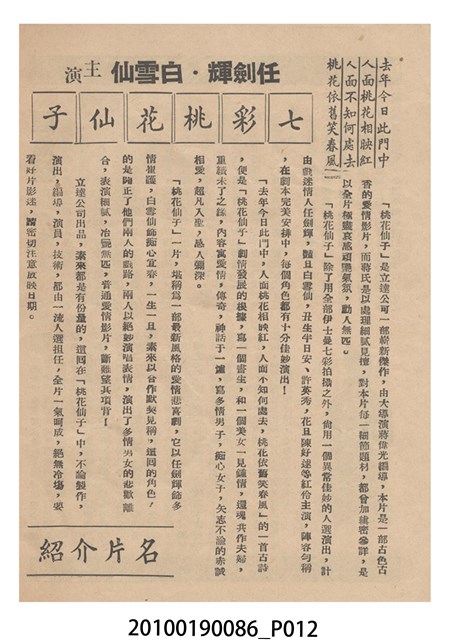 任劍輝・白雪仙
主演
七彩桃花仙子
去年今日此門中
人面桃花相映紅
人面不知何處去
桃花依舊笑春風
「桃花仙子」是立達公司一部嶄新傑作，由大導演蔣偉光編導，本片是一部古色古
香的愛情影片，而蔣氏是以處理細膩見擅，對本片每一個節題材，都曾加縝密參詳，是
以全片極盡哀感頑艷氣氛，動人無匹。
「桃花仙子」除了用全部伊士曼七彩拍攝之外，尚用一個異常佳妙的人選演出，計
由戲迷情人任劍輝，艷旦白雪仙，丑生半日安、許英秀，花旦陳好逑等紅伶主演，陣容勻稱
，在劇本完美安排中，每個角色都有十分佳妙演出！
「去年今日此門中，人面桃花相映紅，人面不知何處去，桃花依舊笑春風」的一首古詩
，便是「桃花仙子」劇情發展的根據，寫一個書生，和一個美女一見鍾情，還魂共作夫婦，
重續未了之緣，內容寓愛情，傳奇，神話于一爐，寫多情男子，痴心女子，矢志不渝的赤誠
相愛，超凡入聖，感人彌深。
「桃花仙子」一片，堪稱爲一部最新風格的愛情悲喜劇，它以任劍輝飾多
情崔護，白雪仙飾痴心宜春，一生一旦，素來以合作默契見稱，這回的角色，
的是時正了他們兩人的戲路，兩人以絕妙演唱表情，演出了多情男女的悲歡離
合，表演細膩，冶艷無匹，普通愛情影片，斷難望其項背！
立達公司出品，素來都是有份量的，這回在「桃花仙子」中，不論製作，
演出，編導，演員，技術，都由一流人選担任，全片一氣呵成，絕無冷場，要
看好片影迷，請密切注意放映日期。
名片介紹
20100190086_P012